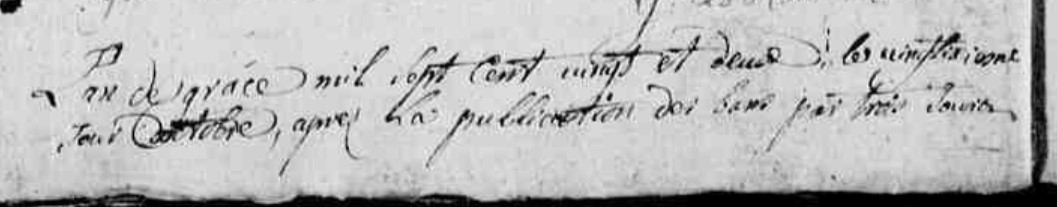 L'an de grâce mil sept cent vingt et deux, le vingtsixieme
Jour d'octobre, apres La publication des bans par trois Jours